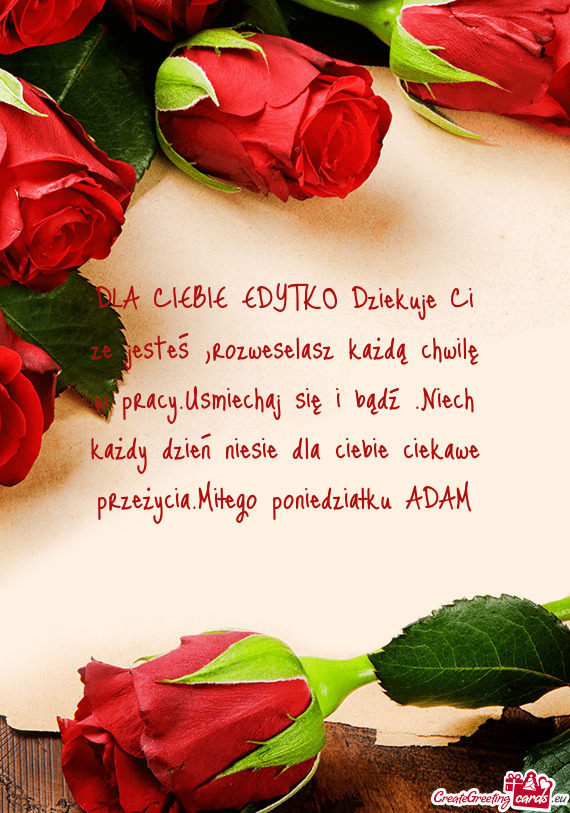 DLA CIEBIE EDYTKO Dziekuje Ci
ze jesteś ,rozweselasz każdą chwilę
w pracy.Usmiechaj się i bądź .Niech
każdy dzień niesie dla ciebie ciekawe
przeżycia.Miłego poniedziałku ADAM
CreateGreeting cards .eu